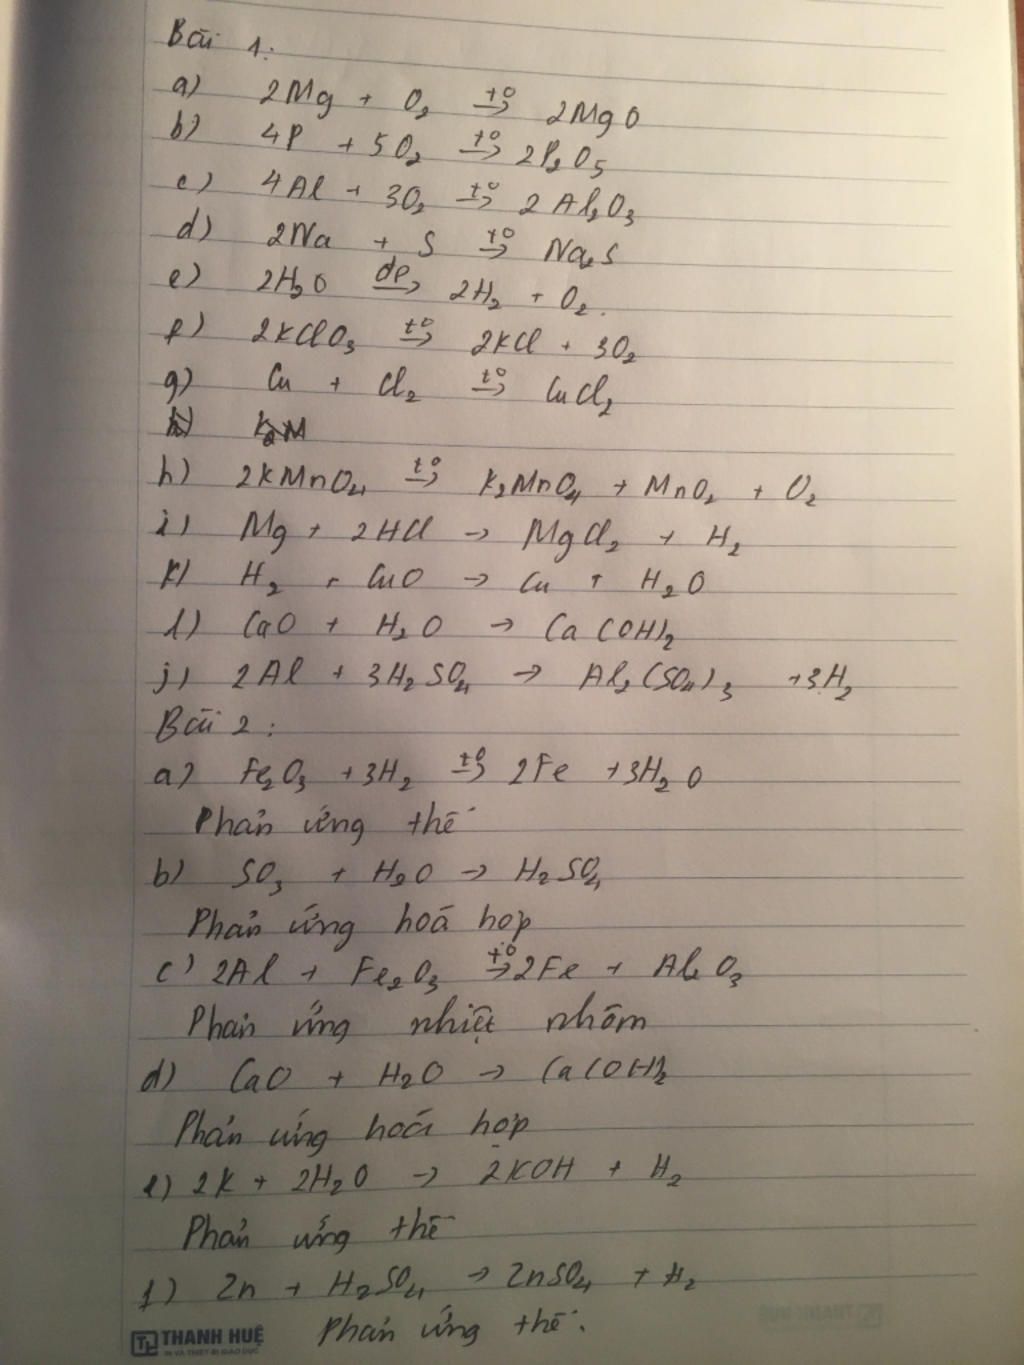 Bài 1:
a) 2Mg + O₂ t⁰→ 2MgO
b) 4P + 5O₂ t⁰→ 2P₂O₅
c) 4Al + 3O₂ t⁰→ 2Al₂O₃
d) 2Na + S t⁰→ Na₂S
e) 2H₂O đp→ 2H₂ + O₂.
f) 2KClO₃ t⁰→ 2KCl + 3O₂
g) Cu + Cl₂ t⁰→ CuCl₂
h) 2KMnO₄ t⁰→ K₂MnO₄ + MnO₂ + O₂
i) Mg + 2HCl → MgCl₂ + H₂
k) H₂ + CuO → Cu + H₂O
l) CaO + H₂O → Ca(OH)₂
j) 2Al + 3H₂SO₄ → Al₂(SO₄)₃ + 3H₂
Bài 2:
a) Fe₂O₃ + 3H₂ t⁰→ 2Fe + 3H₂O
Phản ứng thế
b) SO₃ + H₂O → H₂SO₄
Phản ứng hoá hợp
c) 2Al + Fe₂O₃ t⁰→ 2Fe + Al₂O₃
Phản ứng nhiệt nhôm
d) CaO + H₂O → Ca(OH)₂
Phản ứng hoá hợp
e) 2K + 2H₂O → 2KOH + H₂
Phản ứng thế
f) Zn + H₂SO₄ → ZnSO₄ + H₂
Phản ứng thế.
THANH HUỆ
IN VÀ THIẾT BỊ GIÁO DỤC